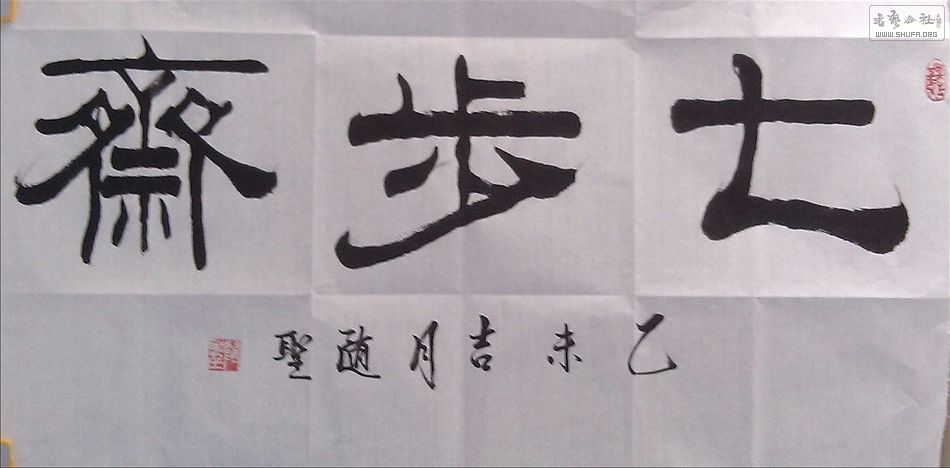 七步齋
乙未吉月
聖
书艺公社
WWW.SHUFA.ORG